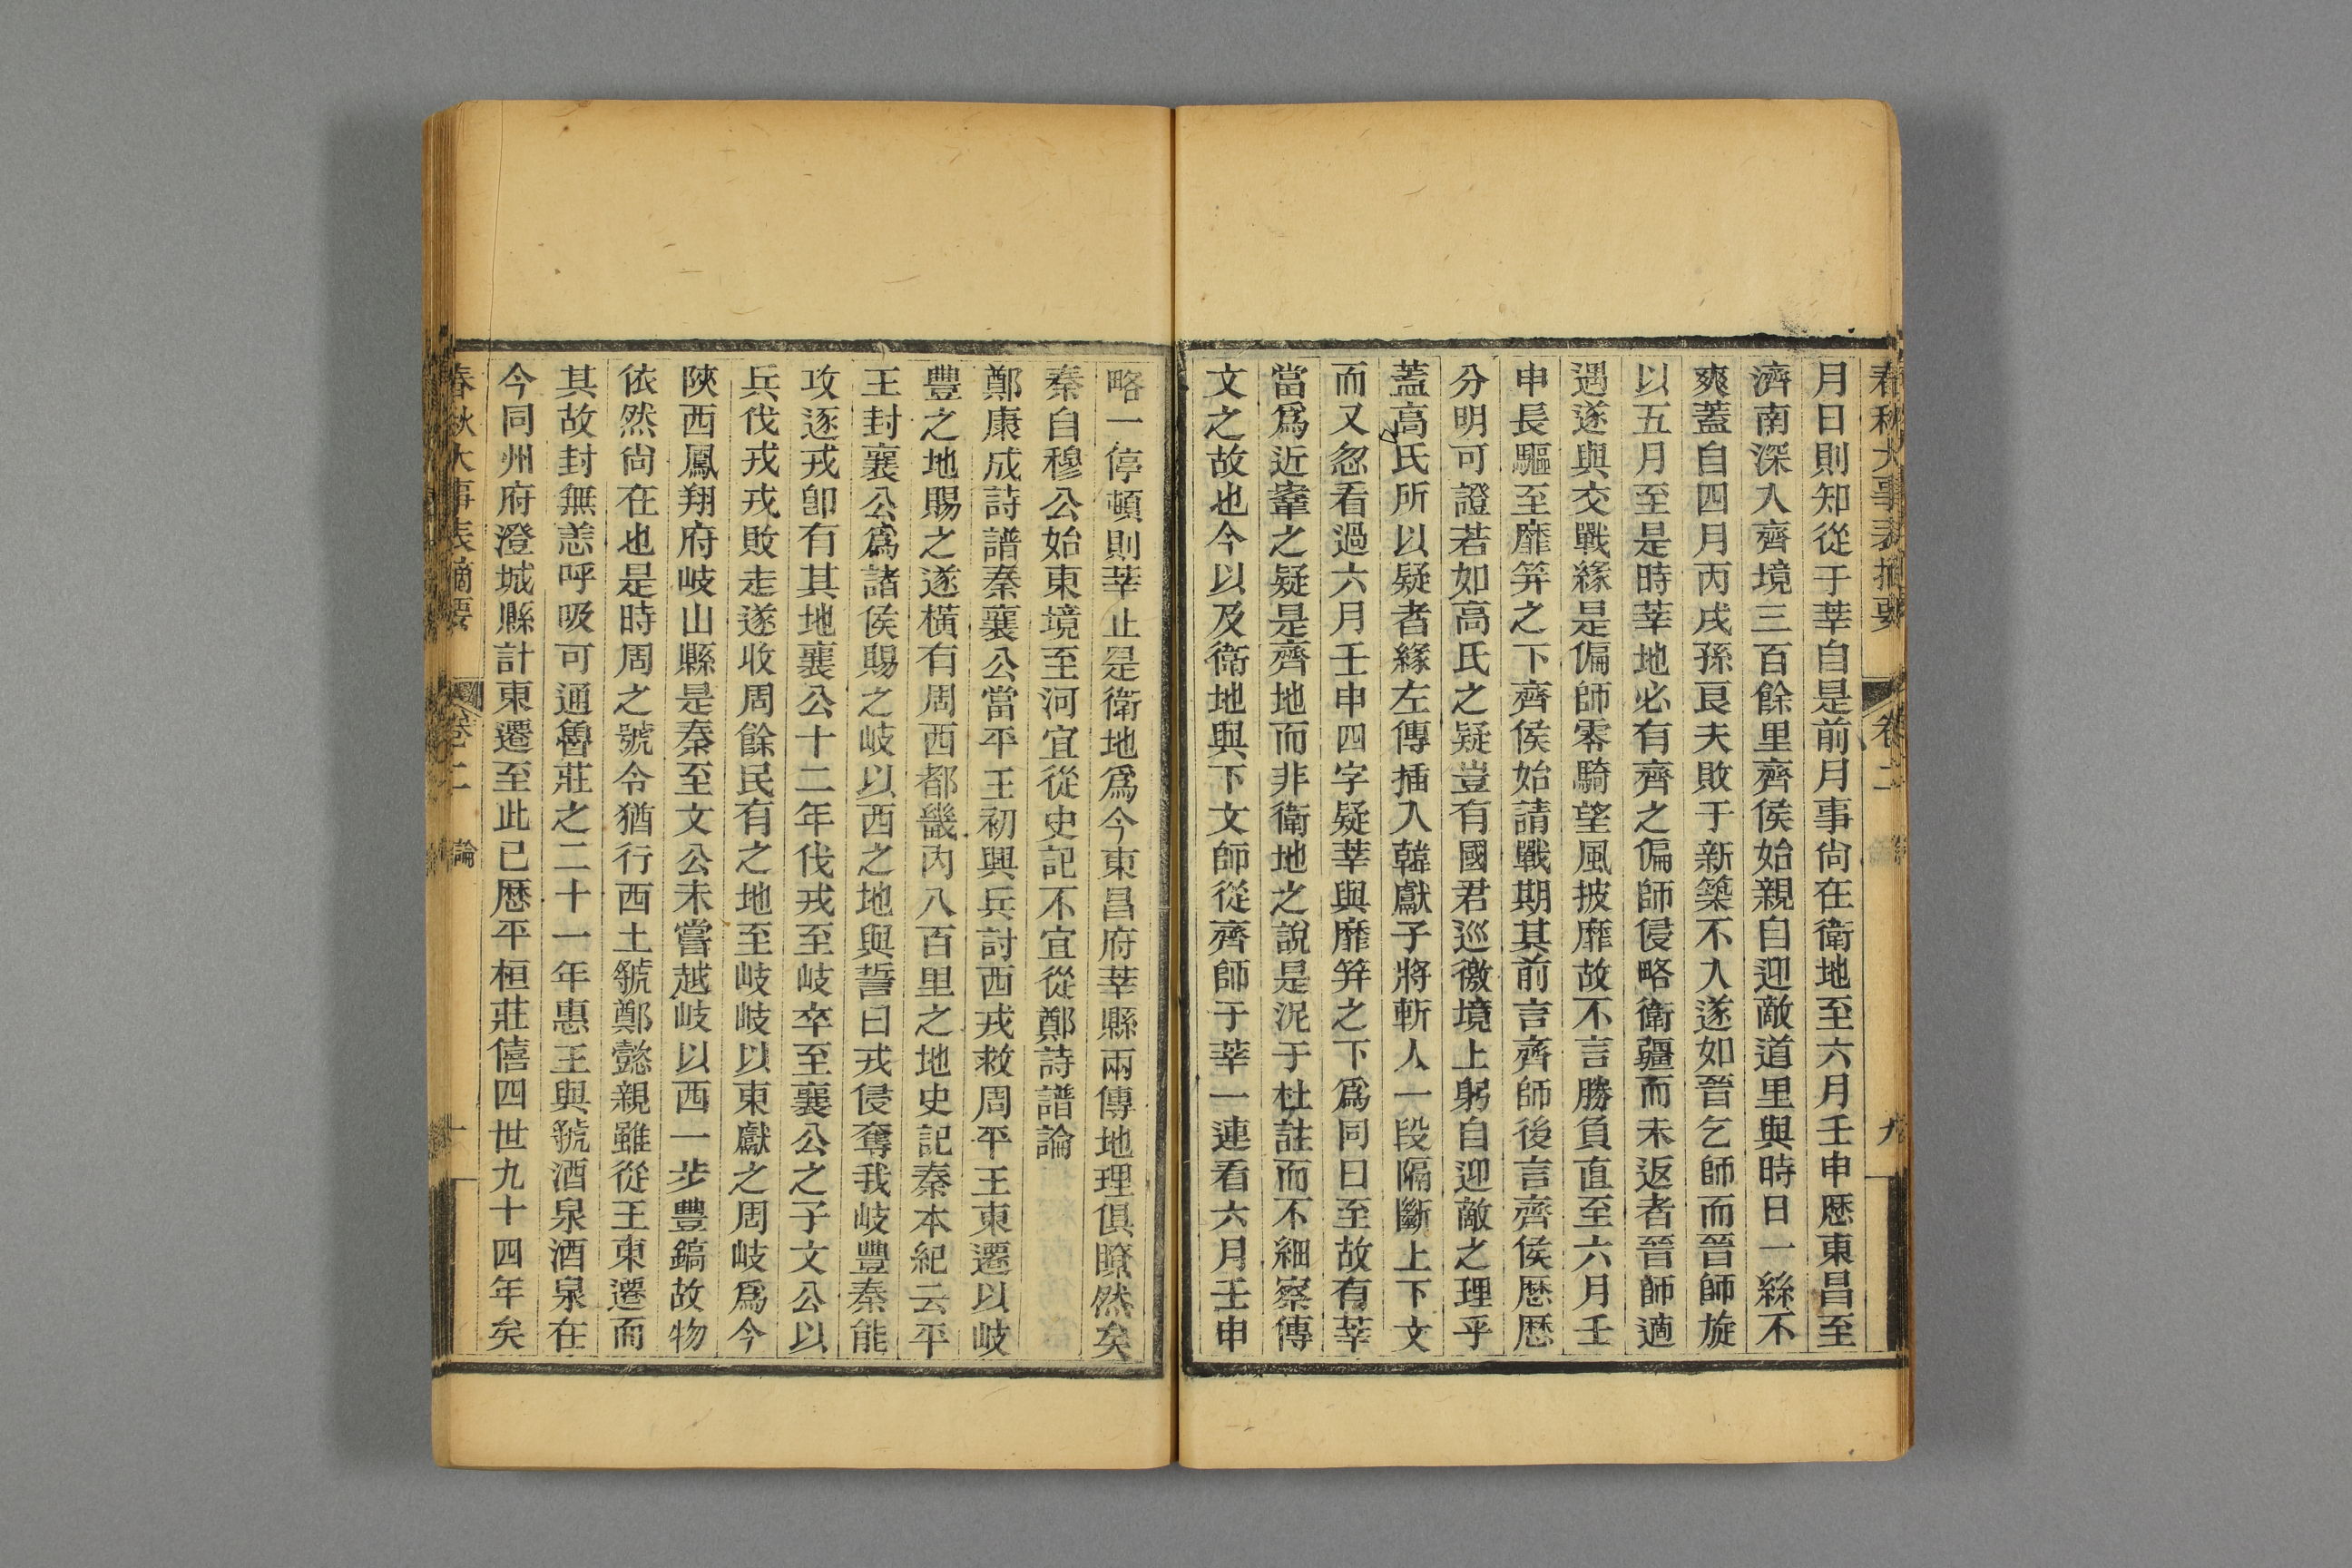 春秋大事表摘要 卷二 九
月日則知從于莘自是前月事尙在衛地至六月壬申歷東昌至
濟南深入齊境三百餘里齊侯始親自迎敵道里與時日一絲不
爽蓋自四月丙戌孫良夫敗于新築不入遂如晉乞師而晉師旋
以五月至是時莘地必有齊之偏師侵略衛疆而未返者晉師適
遇遂與交戰緣是偏師零騎望風披靡故不言勝負直至六月壬
申長驅至靡笄之下齊侯始請戰期其前言齊師後言齊侯歷歷
分明可證若如高氏之疑豈有國君巡徼境上躬自迎敵之理乎
蓋高氏所以疑者緣左傳插入韓獻子將斬人一段隔斷上下文
而又忽看過六月壬申四字疑莘與靡笄之下爲同日至故有莘
當爲近鞌之疑是齊地而非衛地之說是泥于杜註而不細察傳
文之故也今以及衛地與下文師從齊師于莘一連看六月壬申
略一停頓則莘止是衛地爲今東昌府莘縣兩傳地理俱瞭然矣
秦自穆公始東境至河宜從史記不宜從鄭詩譜論
鄭康成詩譜秦襄公當平王初興兵討西戎救周平王東遷以岐
豐之地賜之遂橫有周西都畿內八百里之地史記秦本紀云平
王封襄公爲諸侯賜之岐以西之地與誓曰戎侵奪我岐豐秦能
攻逐戎卽有其地襄公十二年伐戎至岐卒至襄公之子文公以
兵伐戎戎敗走遂收周餘民有之地至岐岐以東獻之周岐爲今
陝西鳳翔府岐山縣是秦至文公未嘗越岐以西一步豐鎬故物
依然尙在也是時周之號令猶行西土虢鄭懿親雖從王東遷而
其故封無恙呼吸可通魯莊之二十一年惠王與虢酒泉酒泉在
今同州府澄城縣計東遷至此已歷平桓莊僖四世九十四年矣
春秋大事表摘要 卷二 論